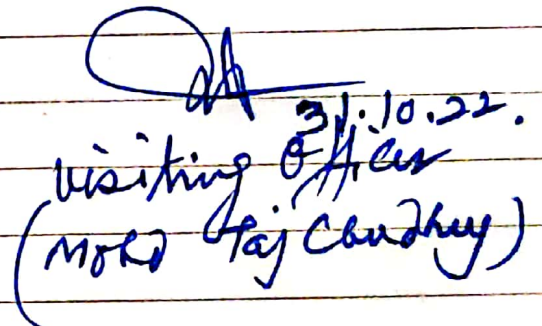 31.10.22.
Visiting Officer
(Mohd Taj Choudhey)